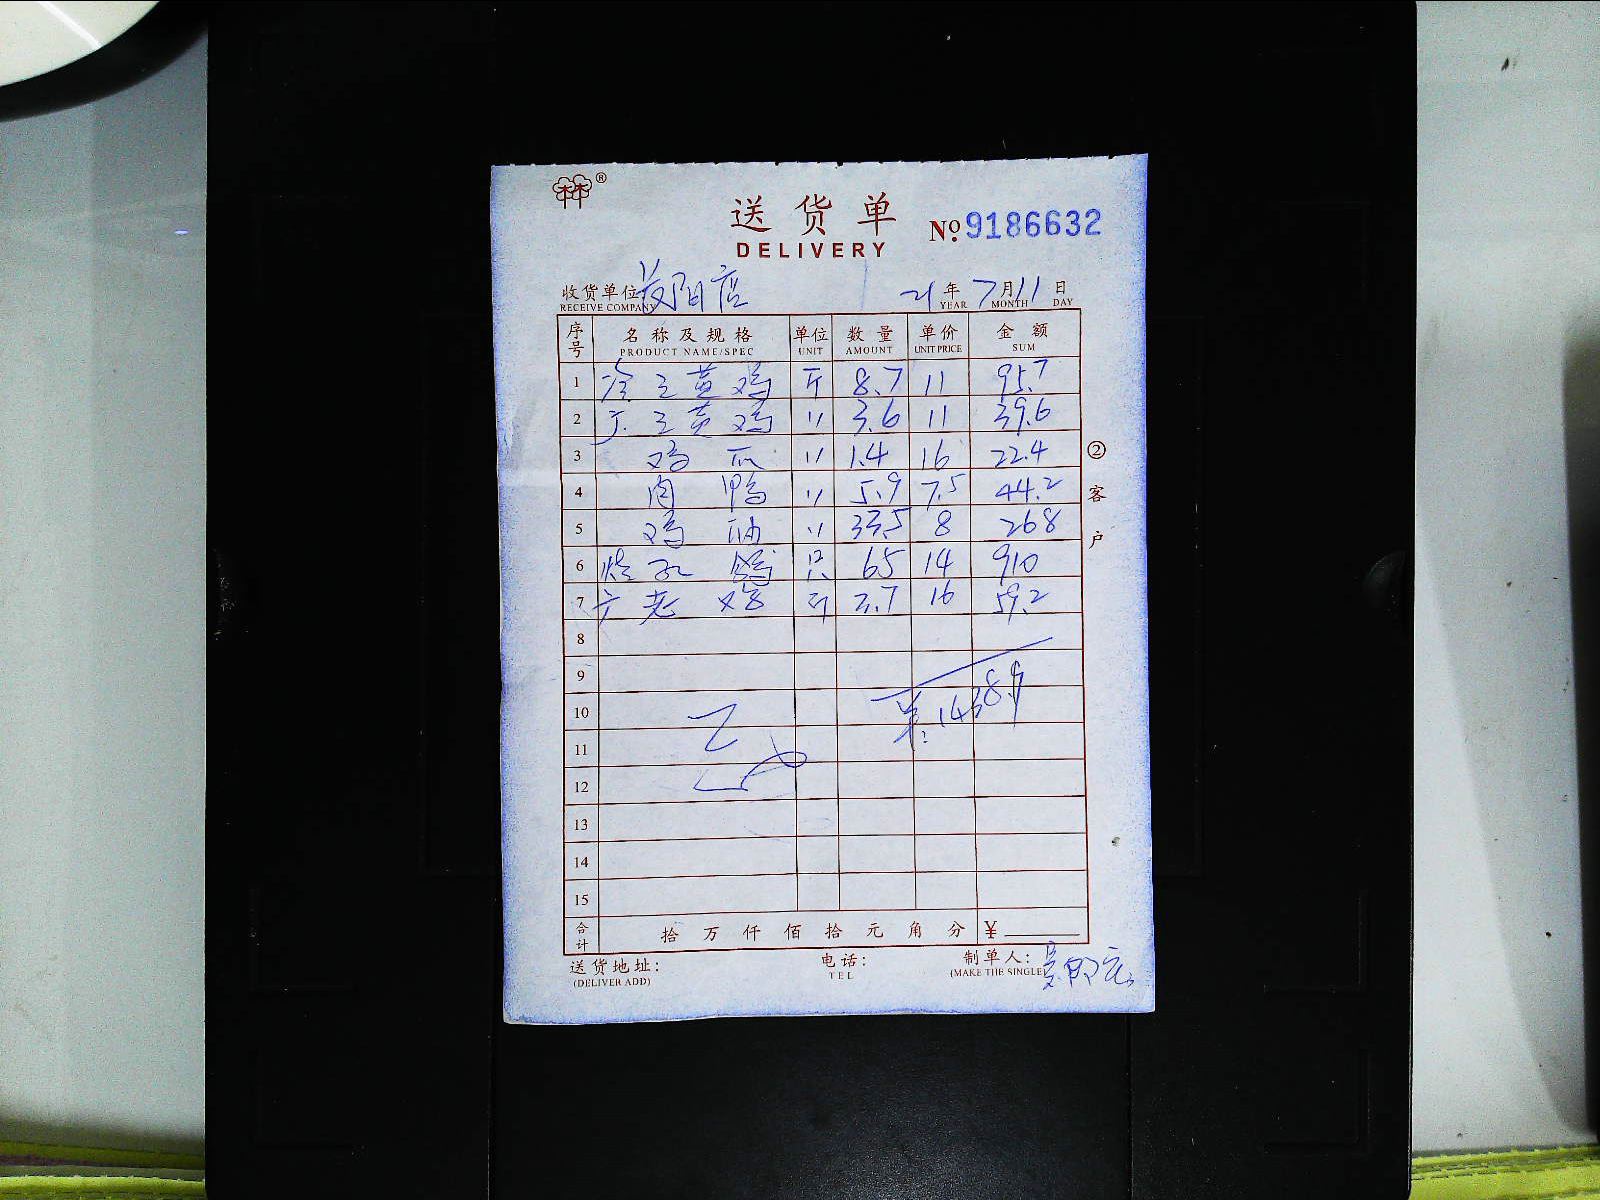 林®
送货单
DELIVERY
№ 9186632
收货单位 阳店 21年 7月 11日
RECEIVE COMPANY YEAR MONTH DAY
序号 名称及规格 单位 数量 单价 金额
PRODUCT NAME/SPEC UNIT AMOUNT UNIT PRICE SUM
1 三黄鸡 斤 8.7 11 95.7
2 三黄鸡 〃 3.6 11 39.6
3 鸡爪 〃 1.4 16 22.4
4 肉鸭 〃 5.9 7.5 44.2
5 鸡油 〃 33.5 8 268
6 鸽 只 65 14 910
7 老鸡 斤 3.7 16 59.2
8
9
10 1438.9
11
12
13
14
15
合计 拾万仟佰拾元角分 ¥
②客户
送货地址: 电话: 制单人:
(DELIVER ADD) TEL (MAKE THE SINGLE)